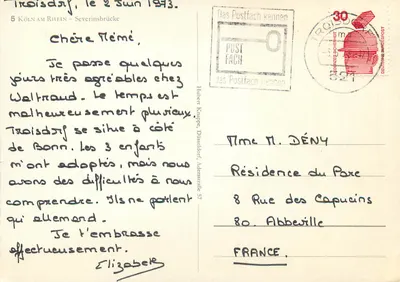 Troisdorf, le 2 Juin 1973.
6 KÖLN AM RHEIN - Severinsbrücke
Chère Mémé,
Je passe quelques
jours très agréables chez
Waltraud. Le temps est
malheureusement pluvieux.
Troisdorf se situe à côté
de Bonn. Les 3 enfants
m'ont adoptés, mais nous
avons des difficultés à nous
comprendre. Ils ne parlent
qu'allemand.
Je t'embrasse
affectueusement.
Elizabeth
Das Postfach kennen
POST
FACH
das Postfach können
TROISDORF
521
30
Mme M. DÉNY
Résidence du Parc
8 Rue des Capucins
80. Abbeville
FRANCE.